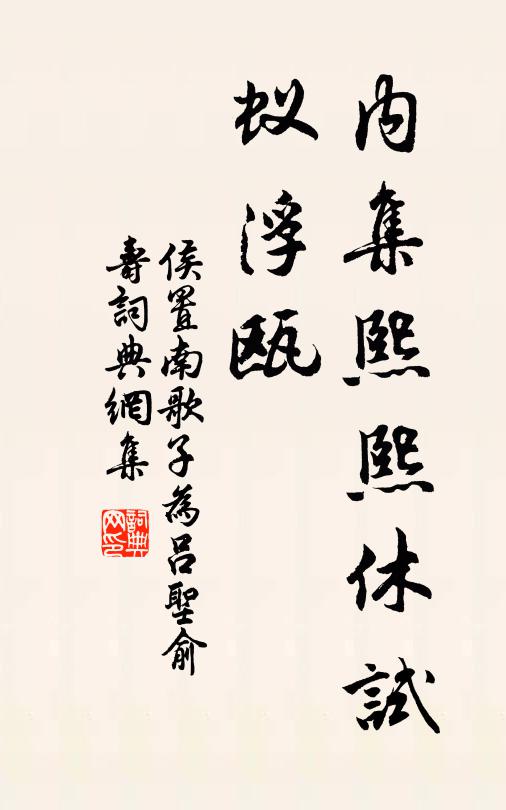 内集熙熙休試
蚁浮瓯
侯置南歌子為呂聖俞
壽詞典網集
詞典网印